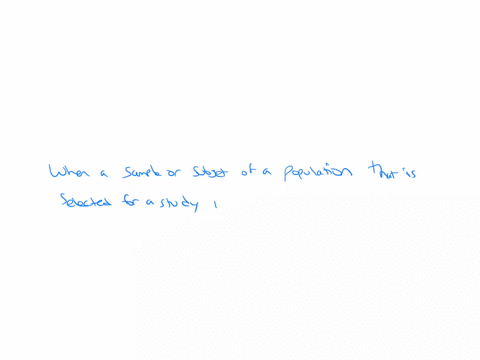 When a sample or subset of a population that is
selected for a study